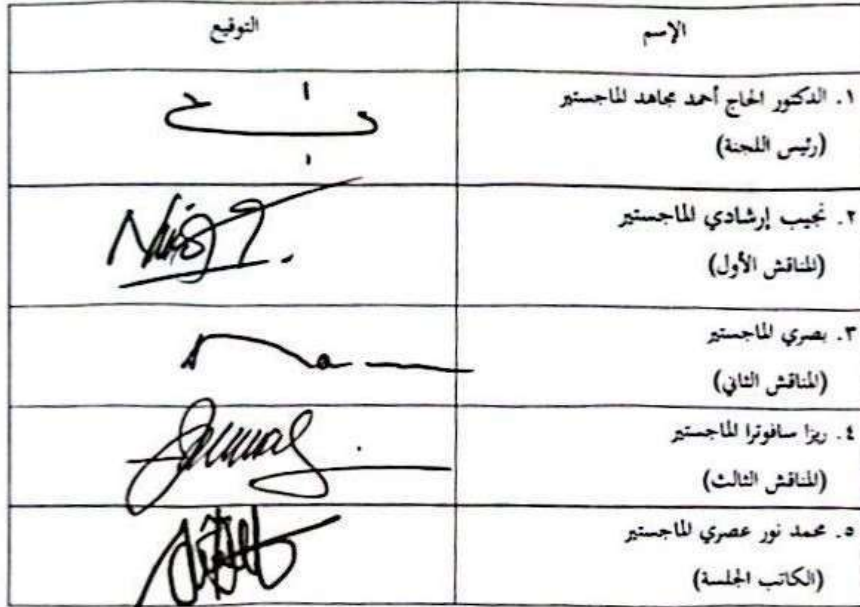 الإسم
التوقيع
١. الدكتور الحاج أحمد مجاهد الماجستير
(رئيس اللجنة)
٢. نجيب إرشادي الماجستير
(المناقش الأول)
٣. بصري الماجستير
(المناقش الثاني)
٤. ريزا سافوترا الماجستير
(المناقش الثالث)
٥. محمد نور عصري الماجستير
(الكاتب الجلسة)